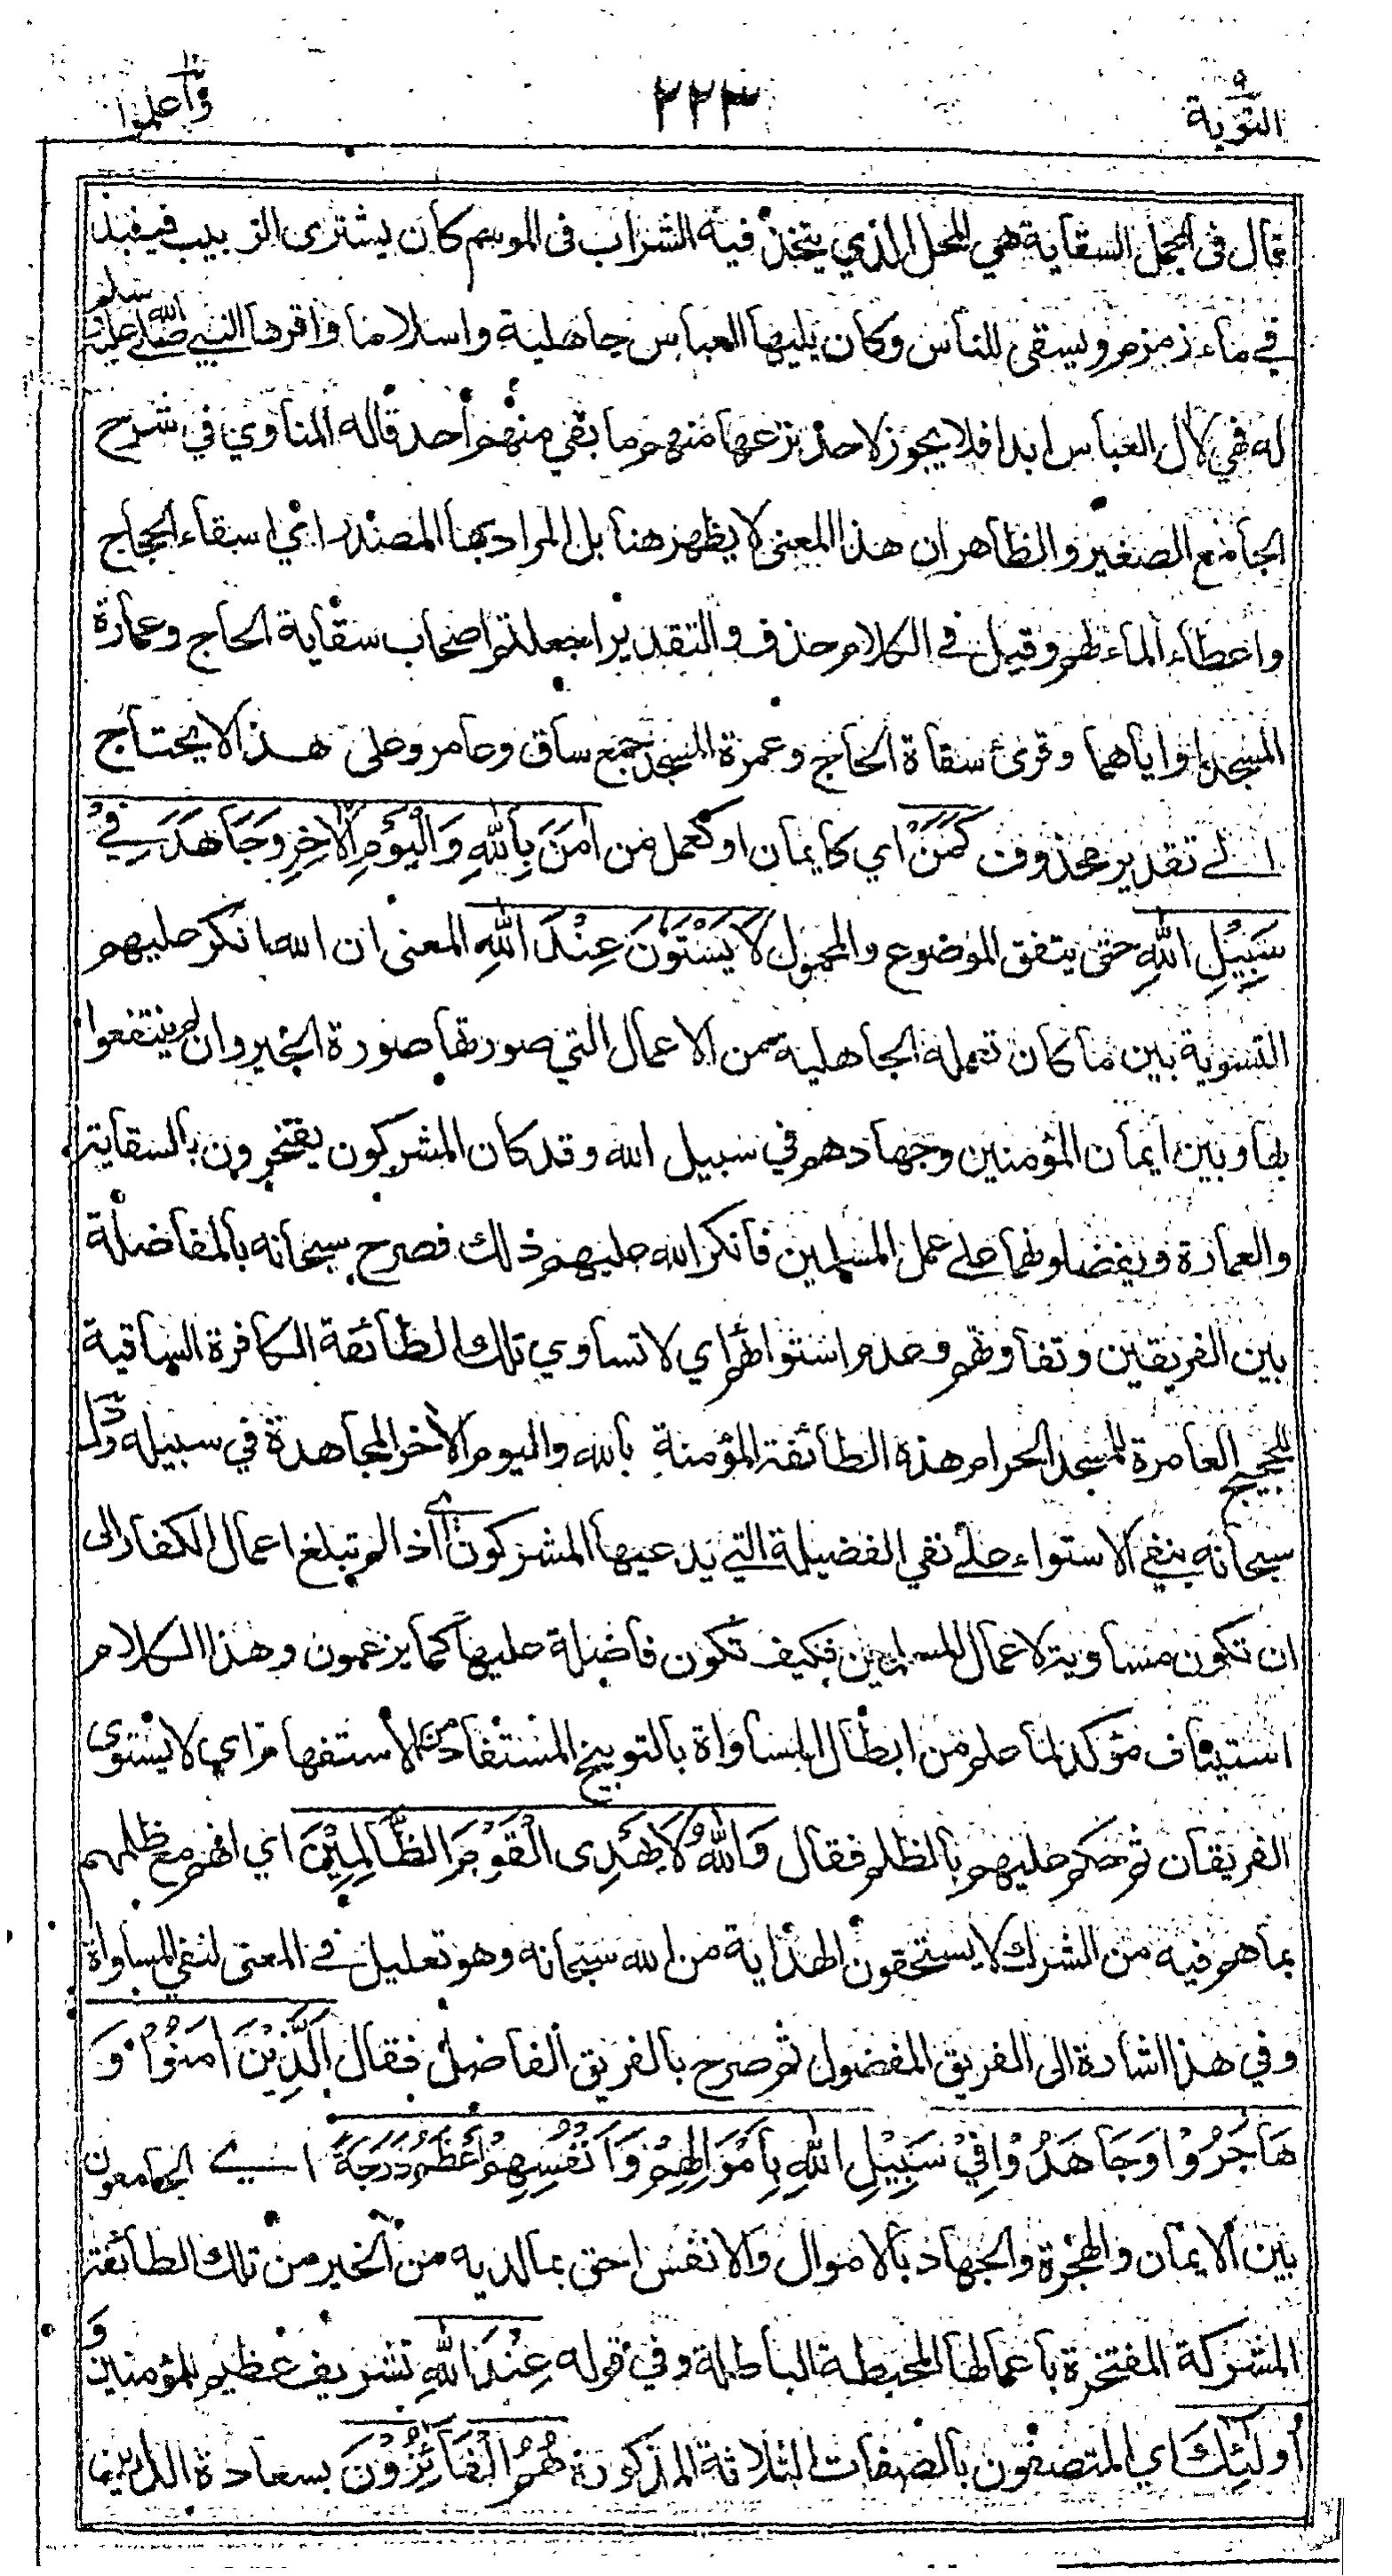 التوبة ٩
٢٢٣
واعلموا ١٠
قال فى الجمل السقاية هي المحل الذي يتخذ فيه الشراب فى الموسم كان يشترى الزبيب فينبذ
في ماء زمزم ويسقى للناس وكان يليها العباس جاهلية واسلاما واقرها النبي صلى الله عليه وسلم
له فهي لآل العباس ابدا فلا يجوز لاحد نزعها منهم ما بقي منهم احد قاله المناوي في شرح
الجامع الصغير والظاهر ان هذا المعنى لا يظهر هنا بل المراد بها المصدر اي اسقاء الحجاج
واعطاء الماء لهم وقيل في الكلام حذف والتقدير اجعلتم اصحاب سقاية الحاج وعمارة
المسجد او اياهما وقرئ سقاة الحاج وعمرة المسجد جمع ساق وعامر وعلى هذا لا يحتاج
الى تقدير محذوف كَمَنْ اي كايمان او كعمل من اٰمَنَ بِاللّٰهِ وَالْيَوْمِ الْاٰخِرِ وَجَاهَدَ فِيْ
سَبِيْلِ اللّٰهِ حتى يتفق الموضوع والمحمول لَا يَسْتَوٗنَ عِنْدَ اللّٰهِ المعنى ان الله انكر عليهم
التسوية بين ما كان تعمله الجاهلية من الاعمال التي صورتها صورة الخير وان لم ينتفعوا
بها وبين ايمان المؤمنين وجهادهم في سبيل الله وقد كان المشركون يفتخرون بالسقاية
والعمارة ويفضلونهما على عمل المسلمين فانكر الله عليهم ذلك فصرح سبحانه بالمفاضلة
بين الفريقين وتفاوتهم وعدم استوائهم اي لا تساوي تلك الطائفة الكافرة الساقية
للحجيج العامرة للمسجد الحرام هذه الطائفة المؤمنة بالله واليوم الاخر المجاهدة في سبيله ودل
سبحانه بنفي الاستواء على نفي الفضيلة التي يدعيها المشركون اي اذا لم تبلغ اعمال الكفار الى
ان تكون مساوية لاعمال المسلمين فكيف تكون فاضلة عليها كما يزعمون وهذا الكلام
استيناف مؤكد لما علم من ابطال المساواة بالتوبيخ المستفاد من الاستفهام اي لا يستوى
الفريقان ثم حكم عليهم بالظلم فقال وَاللّٰهُ لَا يَهْدِى الْقَوْمَ الظّٰلِمِيْنَ اي انهم مع ظلمهم
بما هم فيه من الشرك لا يستحقون الهداية من الله سبحانه وهو تعليل في المعنى لنفي المساواة
وفي هذا اشارة الى الفريق المفضول ثم صرح بالفريق الفاضل فقال اَلَّذِيْنَ اٰمَنُوْا وَ
هَاجَرُوْا وَجَاهَدُوْا فِيْ سَبِيْلِ اللّٰهِ بِاَمْوَالِهِمْ وَاَنْفُسِهِمْ اَعْظَمُ دَرَجَةً اي الجامعون
بين الايمان والهجرة والجهاد بالاموال والانفس احق بما لديه من الخير من تلك الطائفة
المشركة المفتخرة باعمالها المحبطة الباطلة وفي قوله عِنْدَ اللّٰهِ تشريف عظيم للمؤمنين وَ
اُولٰٓئِكَ اي المتصفون بالصفات الثلاثة المذكورة هُمُ الْفَآئِزُوْنَ بسعادة الدارين